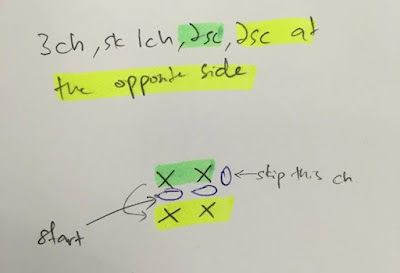 3ch, sk 1ch, 2sc, 2sc at
the opposite side
X X
skip this ch
X X
start